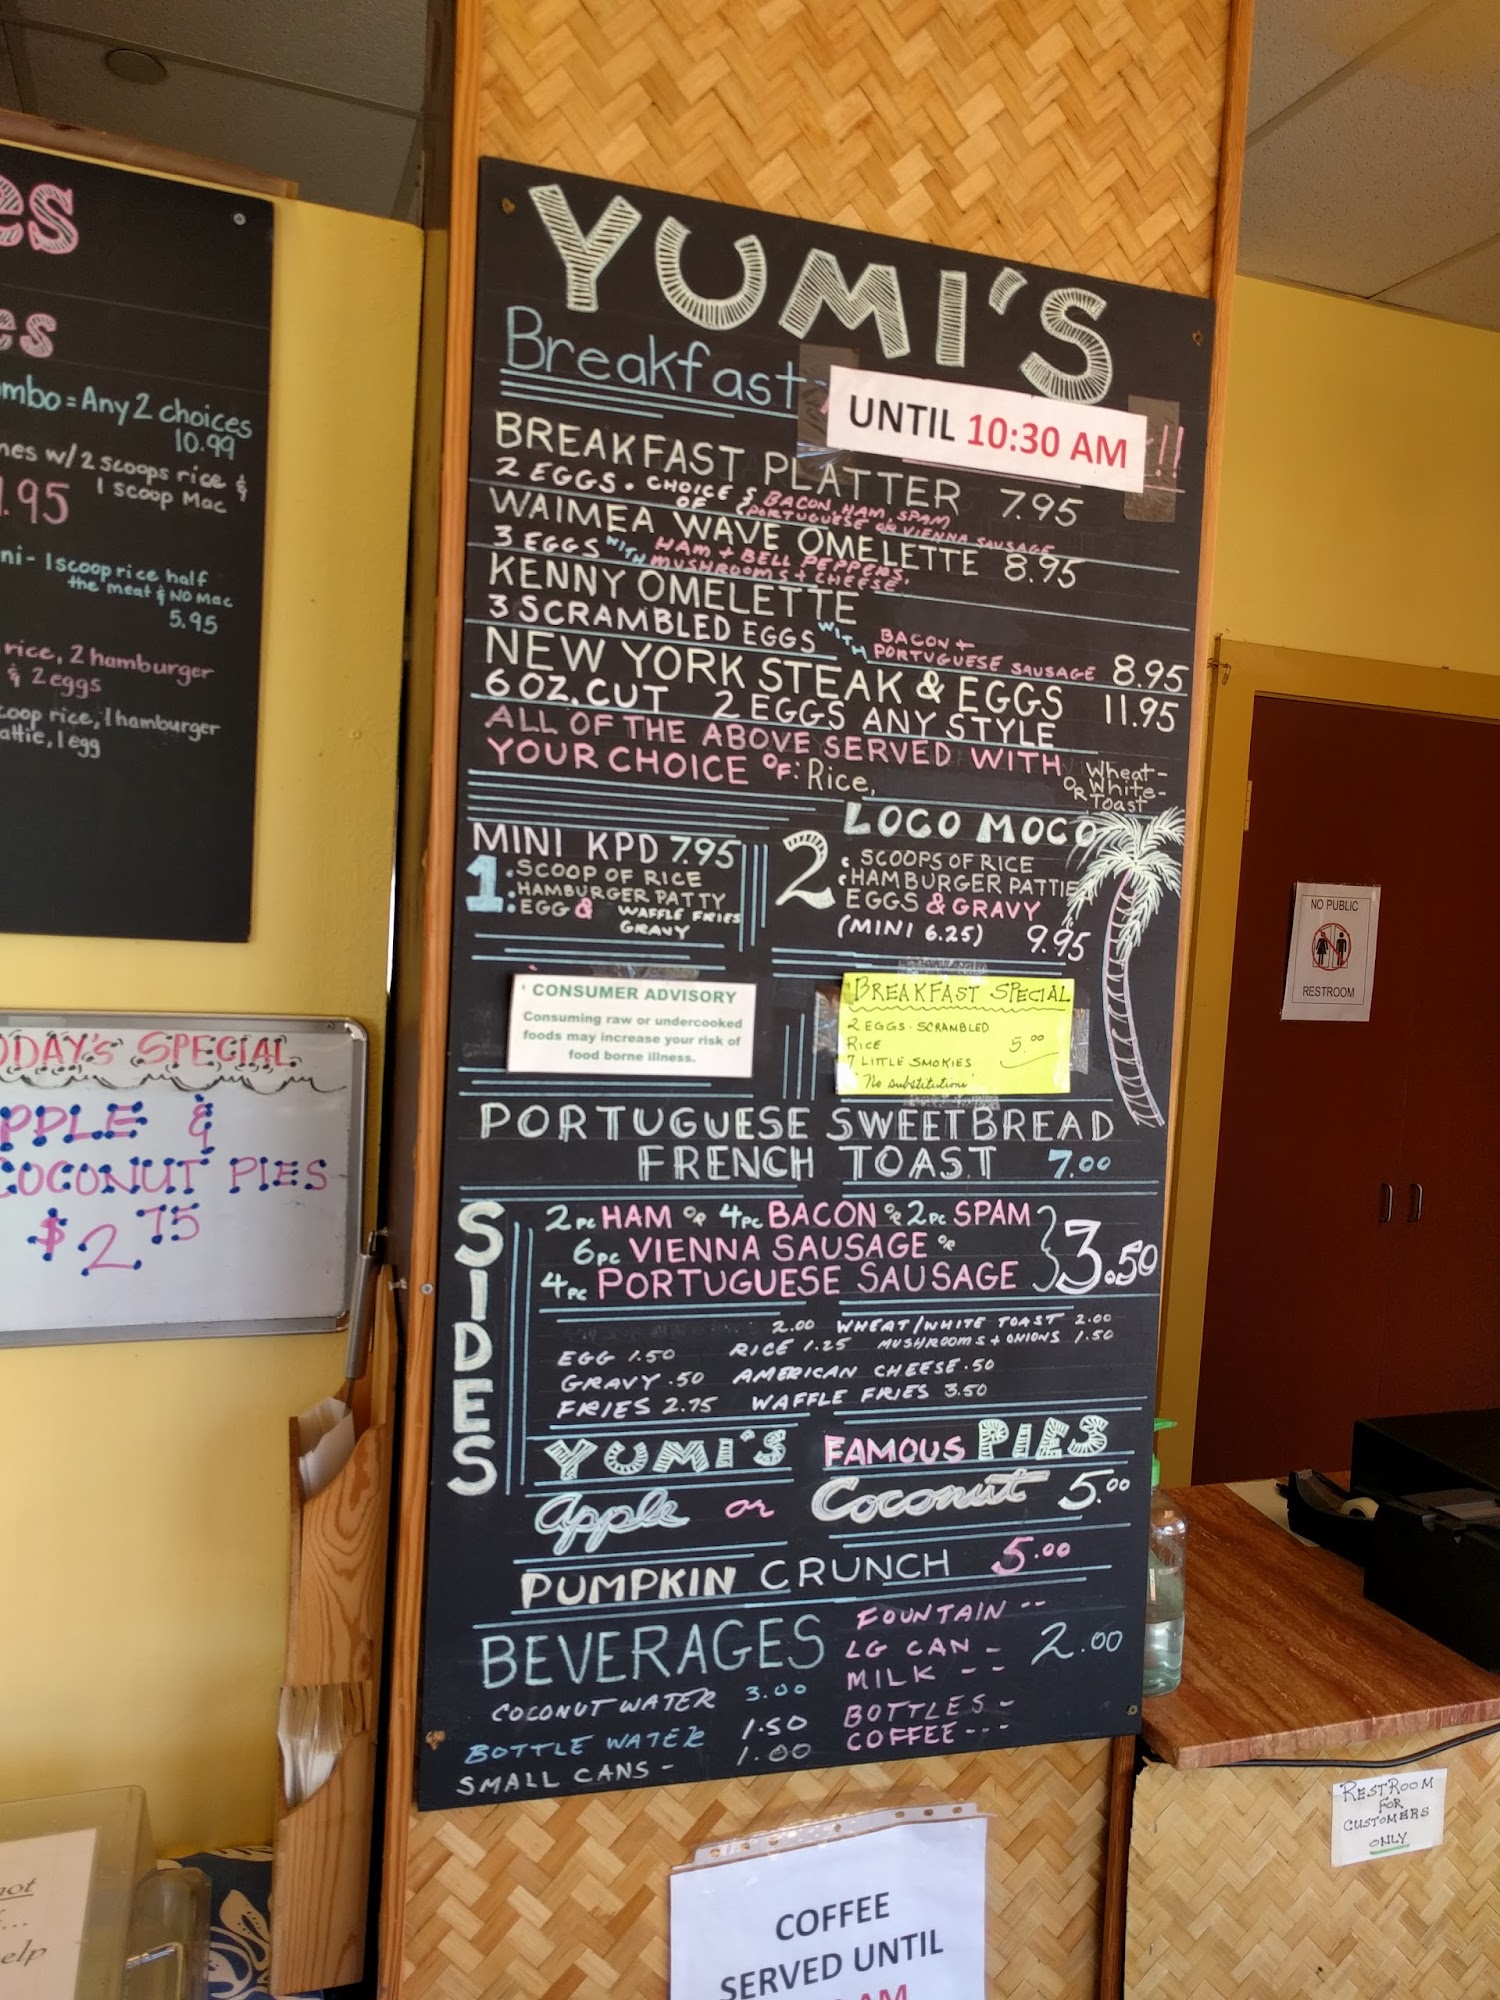 es
es
mbo = Any 2 choices
10.99
nes w/ 2 scoops rice &
1 scoop Mac
.95
ni - 1 scoop rice half
the meat & NO Mac
5.95
rice, 2 hamburger
& 2 eggs
coop rice, 1 hamburger
attie, 1 egg
ODAY'S SPECIAL
PPLE &
COCONUT PIES
$2.75
YUMI'S
Breakfast
UNTIL 10:30 AM !!
BREAKFAST PLATTER 7.95
2 EGGS. CHOICE OF { BACON, HAM, SPAM
PORTUGUESE OR VIENNA SAUSAGE
WAIMEA WAVE OMELETTE 8.95
3 EGGS WITH HAM + BELL PEPPERS,
MUSHROOMS + CHEESE
KENNY OMELETTE
3 SCRAMBLED EGGS WITH BACON +
PORTUGUESE SAUSAGE 8.95
NEW YORK STEAK & EGGS 11.95
6 OZ. CUT 2 EGGS ANY STYLE
ALL OF THE ABOVE SERVED WITH
YOUR CHOICE OF: Rice,
OR Wheat-
White-
Toast
MINI KPD 7.95
1 SCOOP OF RICE
HAMBURGER PATTY
EGG & WAFFLE FRIES
GRAVY
LOCO MOCO
2 SCOOPS OF RICE
HAMBURGER PATTIE
EGGS & GRAVY
(MINI 6.25) 9.95
CONSUMER ADVISORY
Consuming raw or undercooked
foods may increase your risk of
food borne illness.
BREAKFAST SPECIAL
2 EGGS - SCRAMBLED
RICE 5.00
7 LITTLE SMOKIES
"No substitutions"
PORTUGUESE SWEETBREAD
FRENCH TOAST 7.00
SIDES
2pc HAM or 4pc BACON or 2pc SPAM
6pc VIENNA SAUSAGE or
4pc PORTUGUESE SAUSAGE } 3.50
2.00 WHEAT/WHITE TOAST 2.00
EGG 1.50 RICE 1.25 MUSHROOMS + ONIONS 1.50
GRAVY .50 AMERICAN CHEESE .50
FRIES 2.75 WAFFLE FRIES 3.50
YUMI'S FAMOUS PIES
Apple or Coconut 5.00
PUMPKIN CRUNCH 5.00
BEVERAGES
COCONUT WATER 3.00
BOTTLE WATER 1.50
SMALL CANS - 1.00
FOUNTAIN --
LG CAN - 2.00
MILK --
BOTTLES -
COFFEE ---
NO PUBLIC
RESTROOM
RESTROOM
FOR
CUSTOMERS
ONLY
COFFEE
SERVED UNTIL
AM
not
elp